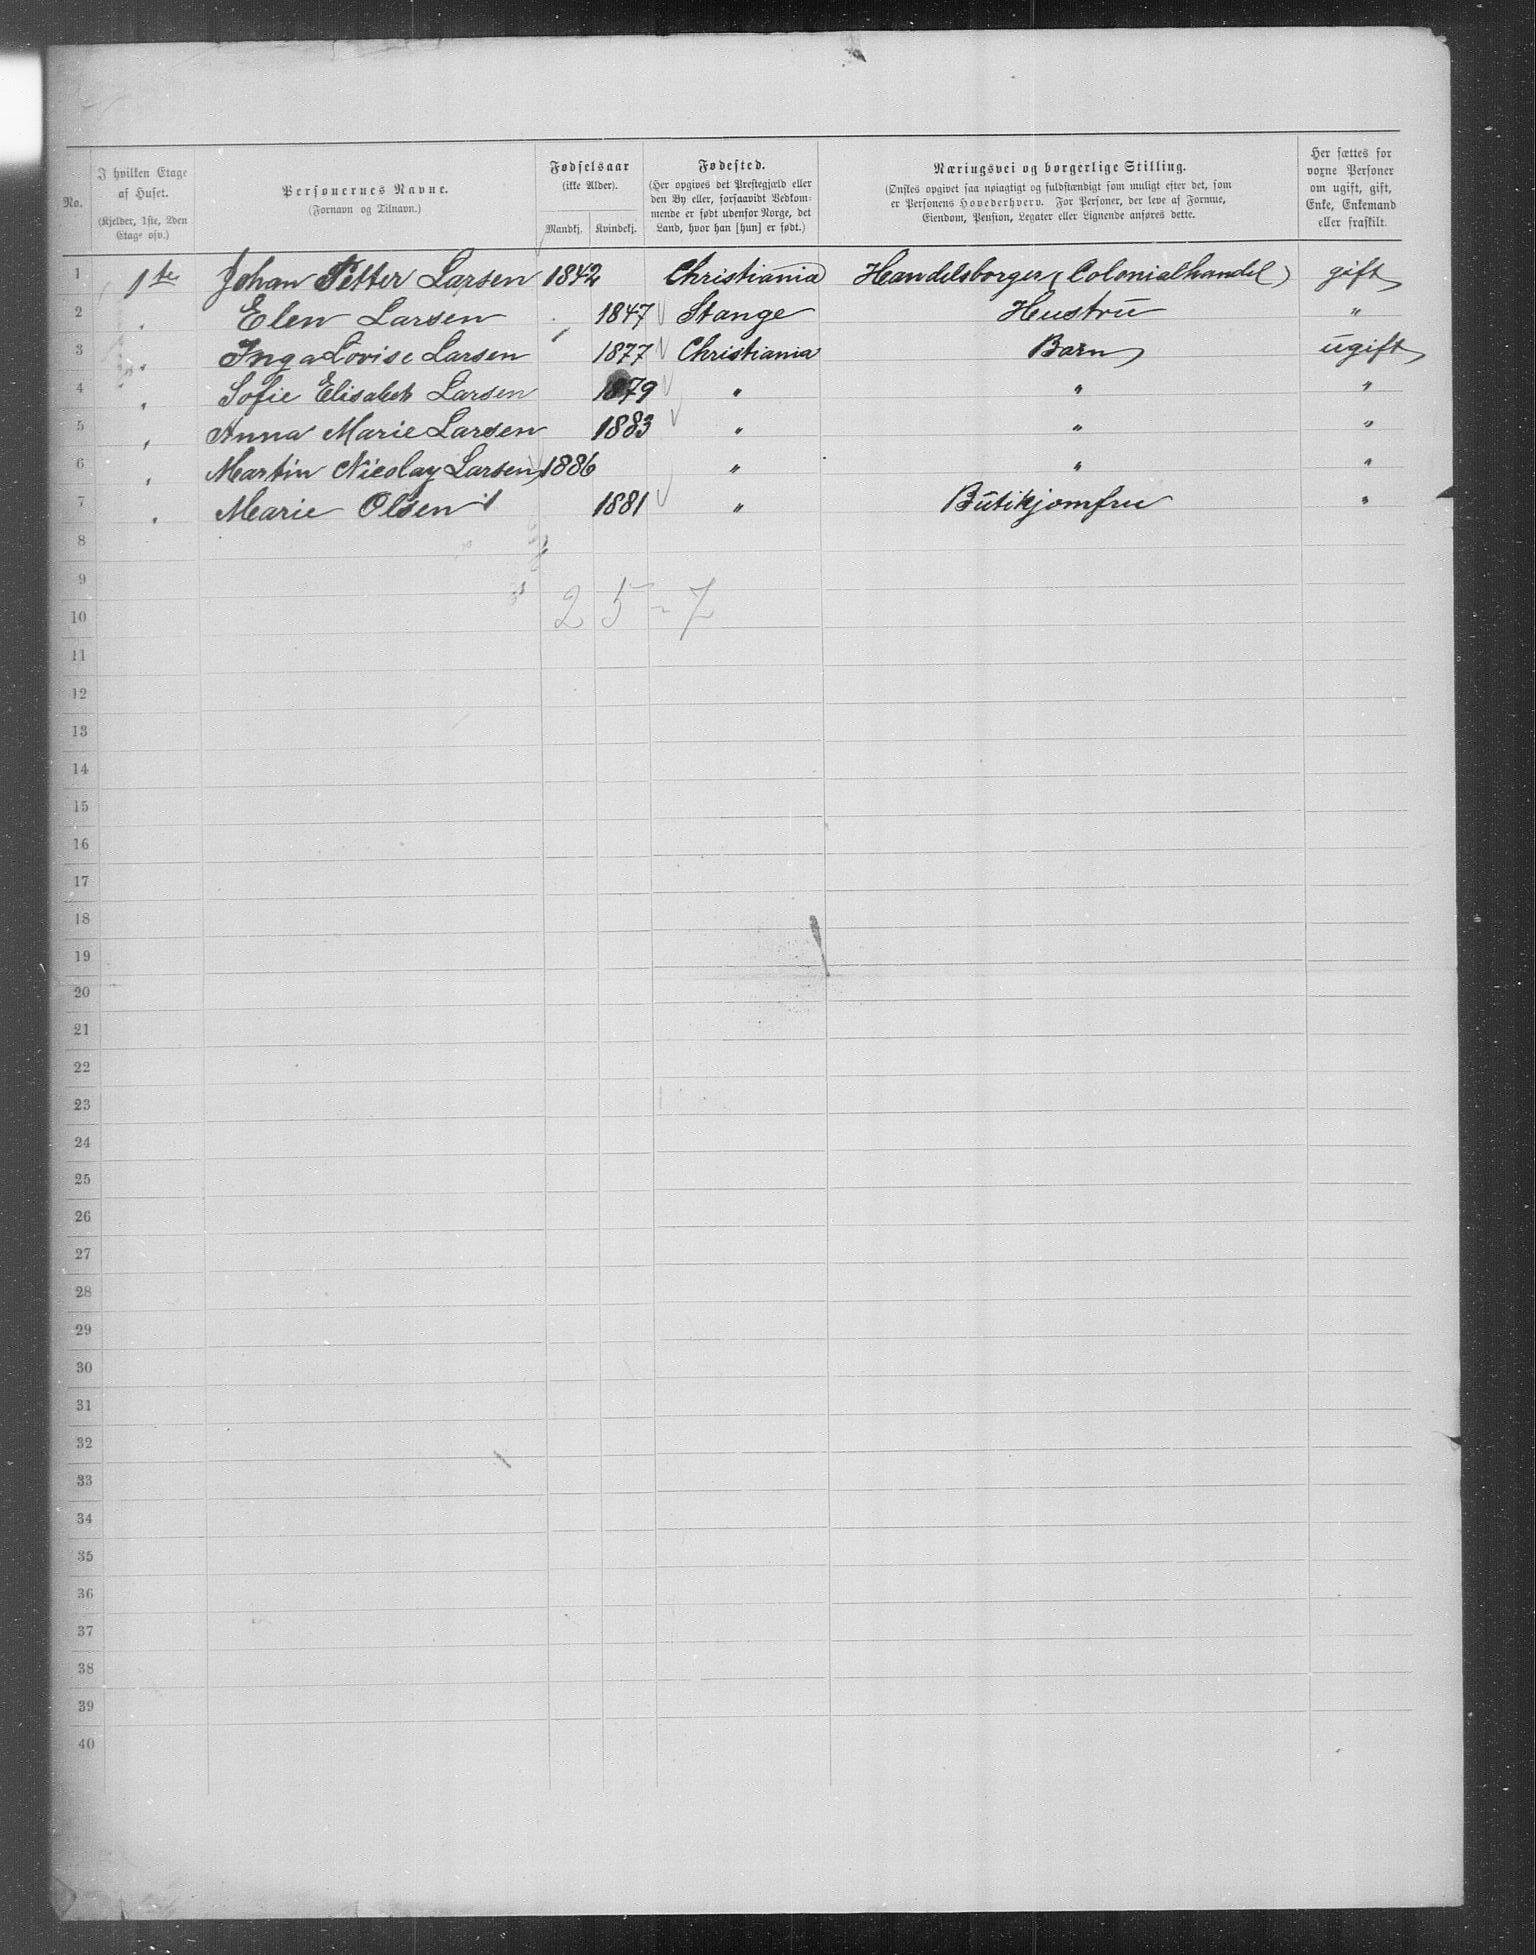 No. | I hvilken Etage af Huset. (Kjelder, 1ste, 2den Etage osv.) | Personernes Navne. (Fornavn og Tilnavn.) | Fødselsaar (ikke Alder). Mandkj. | Kvindekj. | Fødested. (Her opgives det Prestegjæld eller den By eller, forsaavidt Vedkommende er født udenfor Norge, det Land, hvor han [hun] er født.) | Næringsvei og borgerlige Stilling. (Ønskes opgivet saa nøiagtigt og fuldstændigt som muligt efter det, som er Personens Hovederhverv. For Personer, der leve af Formue, Eiendom, Pension, Legater eller Lignende anføres dette.) | Her sættes for voxne Personer om ugift, gift, Enke, Enkemand eller fraskilt.
1 | 1ste | Johan Petter Larsen | 1842 | | Christiania | Handelsborger (Colonialhandel) | gift
2 | " | Elen Larsen | | 1847 | Stange | Hustru | "
3 | " | Inga Lovise Larsen | | 1877 | Christiania | Barn | ugift
4 | " | Sofie Elisabet Larsen | | 1879 | " | " | "
5 | " | Anna Marie Larsen | | 1883 | " | " | "
6 | " | Martin Nicolay Larsen | 1886 | | " | " | "
7 | " | Marie Olsen | | 1881 | " | Butikjomfru | "
8
9
10 | 2 5 - 7
11
12
13
14
15
16
17
18
19
20
21
22
23
24
25
26
27
28
29
30
31
32
33
34
35
36
37
38
39
40